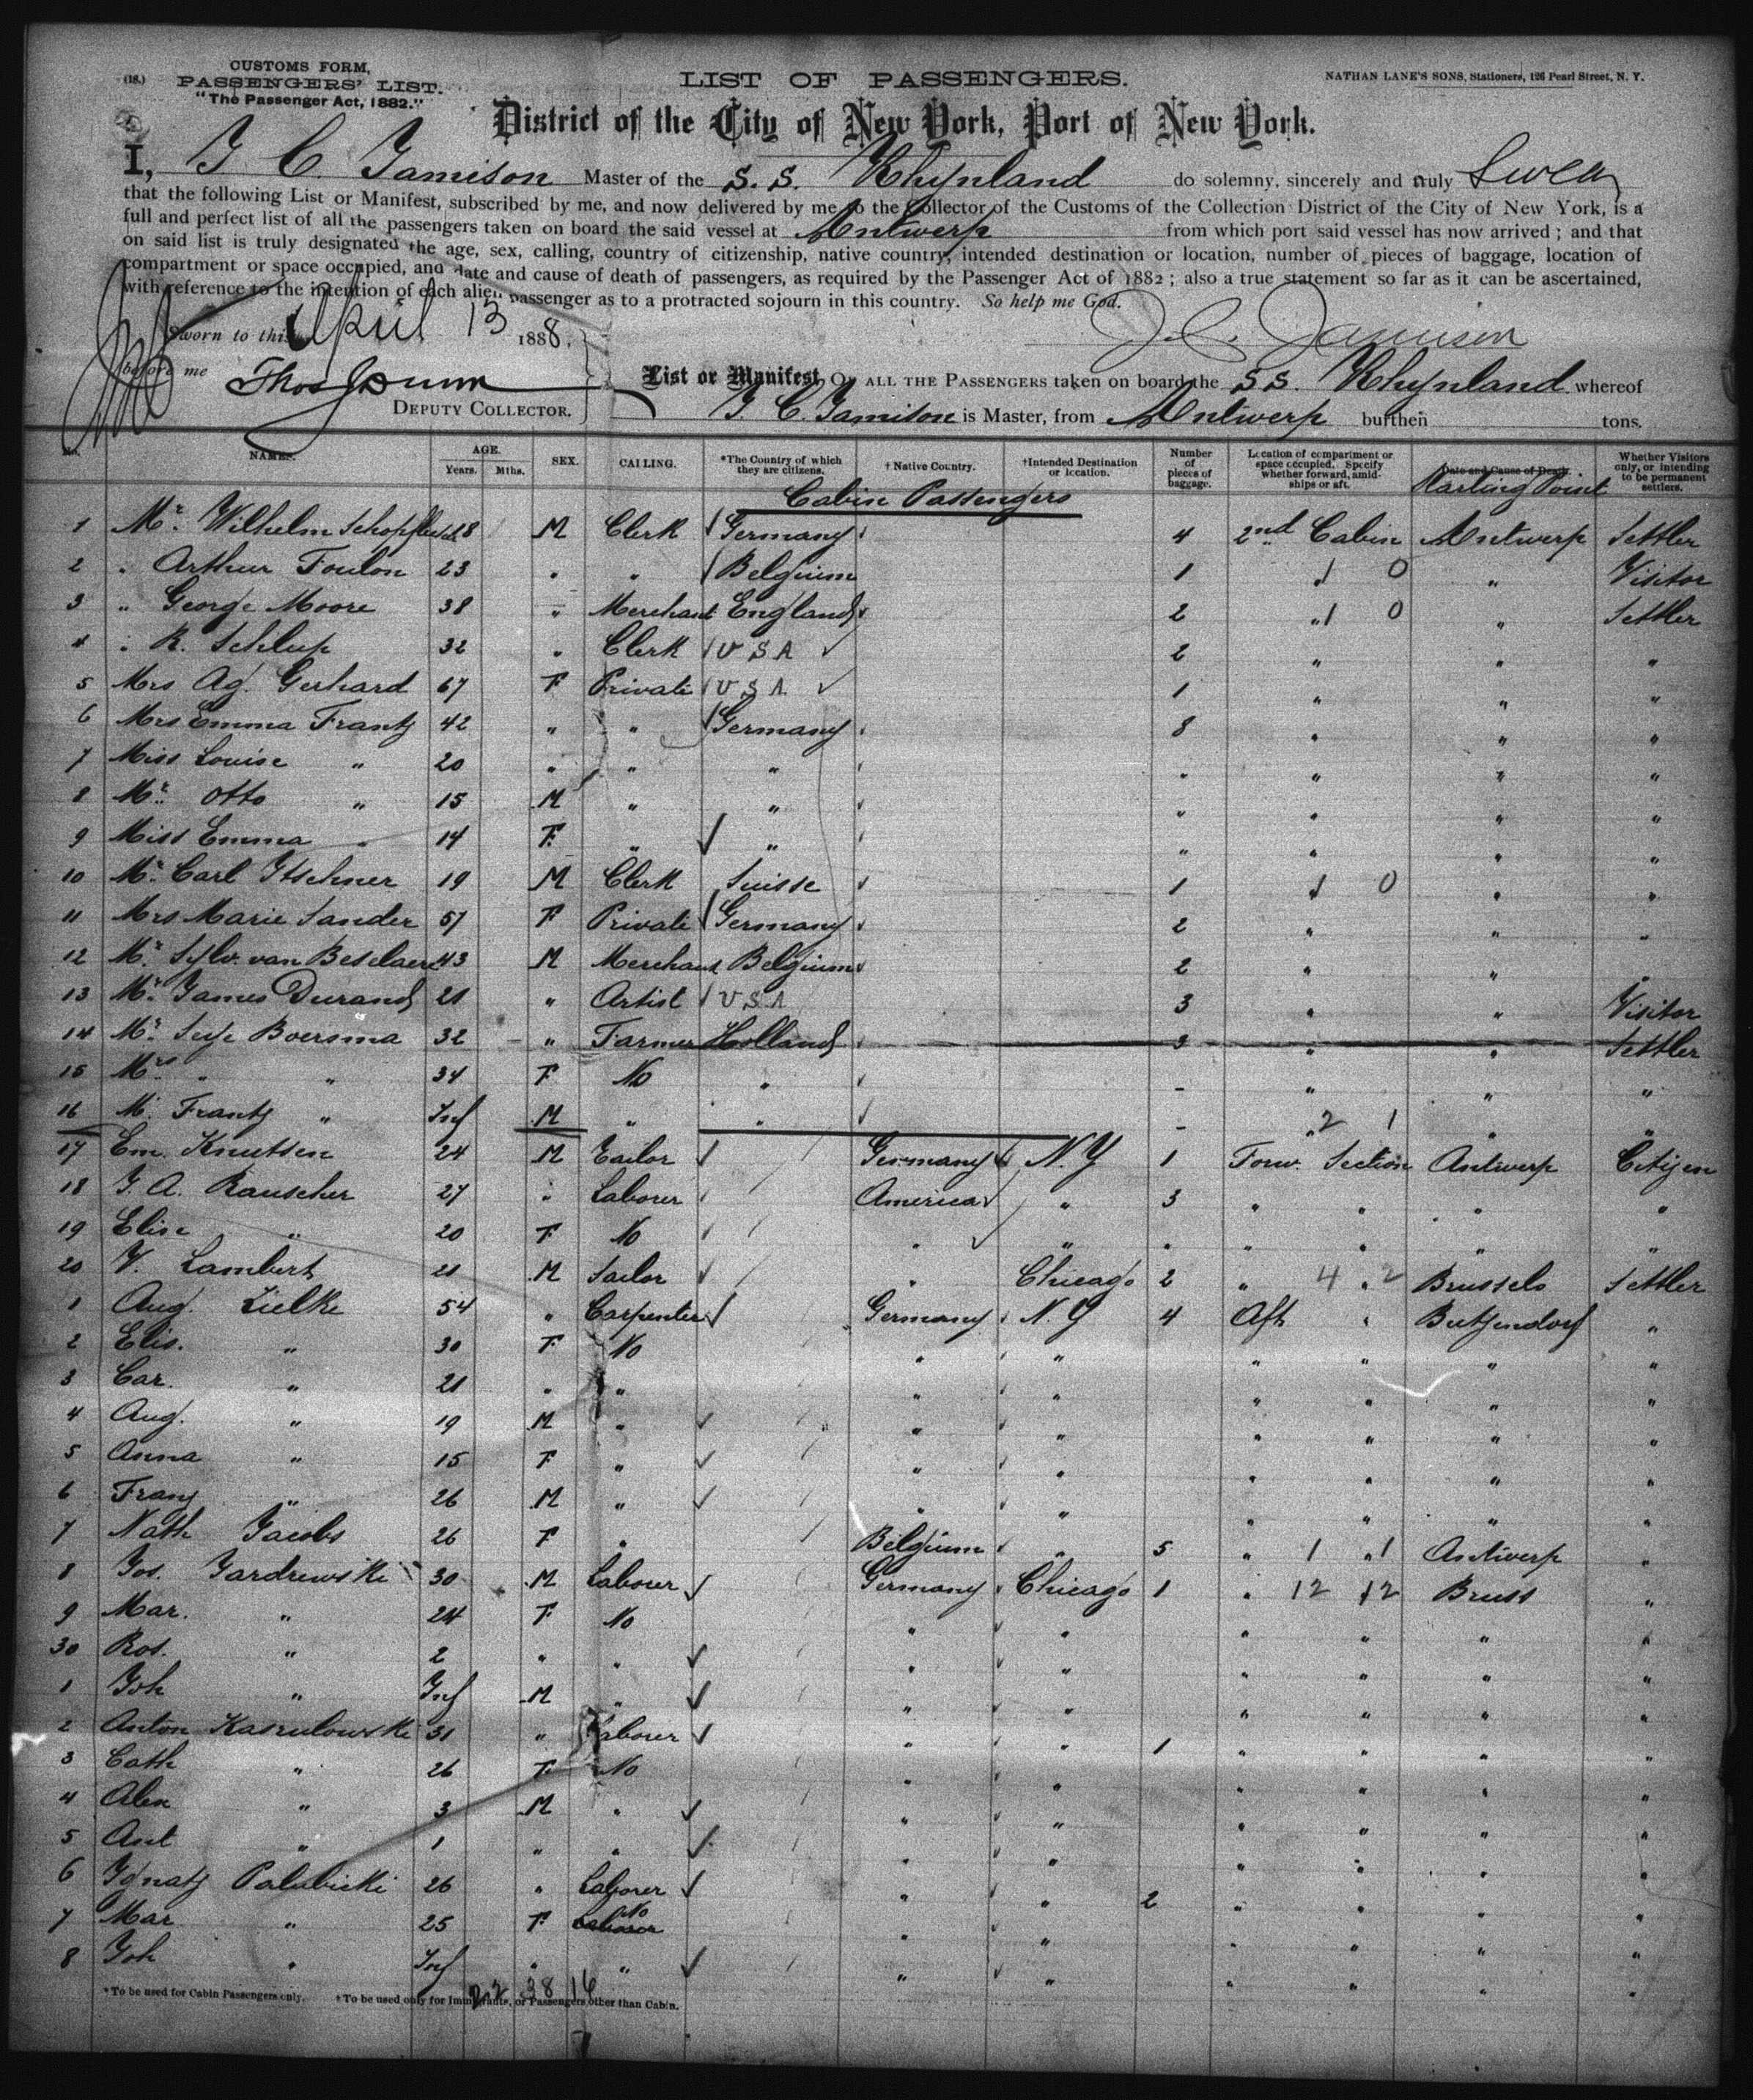 (18.)
CUSTOMS FORM,
PASSENGERS' LIST.
"The Passenger Act, 1882."
LIST OF PASSENGERS.
NATHAN LANE'S SONS, Stationers, 126 Pearl Street, N. Y.
District of the City of New York, Port of New York.
I, J C. Jamison Master of the S. S. Rhynland do solemny, sincerely and truly Swear
that the following List or Manifest, subscribed by me, and now delivered by me to the Collector of the Customs of the Collection District of the City of New York, is a
full and perfect list of all the passengers taken on board the said vessel at Antwerp from which port said vessel has now arrived; and that
on said list is truly designated the age, sex, calling, country of citizenship, native country, intended destination or location, number of pieces of baggage, location of
compartment or space occupied, and date and cause of death of passengers, as required by the Passenger Act of 1882; also a true statement so far as it can be ascertained,
with reference to the intention of each alien passenger as to a protracted sojourn in this country. So help me God.
Sworn to this April 13 1888.
J. C. Jamison
before me Thos Dunn
DEPUTY COLLECTOR.
List or Manifest OF ALL THE PASSENGERS taken on board the SS. Rhynland whereof
J. C. Jamison is Master, from Antwerp burthen tons.
No. NAMES. AGE. Years. Mths. SEX. CALLING. *The Country of which they are citizens. †Native Country. †Intended Destination or location. Number of pieces of baggage. Location of compartment or space occupied. Specify whether forward, amidships or aft. Date and Cause of Death. Starting Point Whether Visitors only, or intending to be permanent settlers.
Cabin Passengers
1 Mr. Wilhelm 28 M Clerk Germany 4 2nd Cabin Antwerp Settler
2 " Arthur Foulon 23 " " Belgium 1 " 1 0 " Visitor
3 " George Moore 38 " Merchant England 2 " 1 0 " Settler
4 " R. Schlup 32 " Clerk USA 2 " " "
5 Mrs Ag. Gerhard 67 F Private USA 1 " " "
6 Mrs Emma Frantz 42 " " Germany 8 " " "
7 Miss Louise " 20 " " " " " " "
8 Mr. Otto " 15 M " " " " " "
9 Miss Emma " 14 F " " " " " "
10 Mr. Carl Itschner 19 M Clerk Suisse 1 " 1 0 " "
11 Mrs Marie Sander 57 F Private Germany 2 " " "
12 Mr. Sylv. van Beselaere 43 M Merchant Belgium 2 " " "
13 Mr. James Durand 21 " Artist USA 3 " " Visitor
14 Mr. Boersma 32 " Farmer Holland 3 " " Settler
15 Mrs " " 34 F No " - " " "
16 M. Frantz " Inf M " " - " 2 1 " "
17 Em. Knutsen 24 M Tailor Germany N.Y 1 Forw. Section Antwerp Citizen
18 J. A. Rauscher 27 " Laborer America " 3 " " " "
19 Elise " 20 F No " " " " " " "
20 V. Lambert 21 M Sailor " Chicago 2 " 4 " 2 Brussels Settler
1 Aug. Zielke 54 " Carpenter Germany N.Y 4 Aft " Butzendorf "
2 Elis. " 30 F No " " " " " "
3 Car. " 21 " " " " " " " "
4 Aug. " 19 M " " " " " " "
5 Anna " 15 F " " " " " " "
6 Franz " 26 M " " " " " " "
7 Nath Jacobs 26 F " Belgium " 5 " 1 " 1 Antwerp "
8 Jos. Jardrewski 30 M Labourer Germany Chicago 1 " 12 12 Bruss "
9 Mar. " 24 F No " " " " " "
30 Ros. " 2 " " " " " " " "
1 Joh " Inf M " " " " " " "
2 Anton 31 " Laborer " " 1 " " " "
3 Cath " 26 F No " " " " " "
4 Alex " 3 M " " " " " " "
5 Ant " 1 " " " " " " " "
6 Ignatz Palubicki 26 " Laborer " " 2 " " " "
7 Mar " 25 F No " " " " " "
8 Joh " Inf " " " " " " " "
*To be used for Cabin Passengers only. †To be used only for Immigrants, or Passengers other than Cabin.
22 38 16